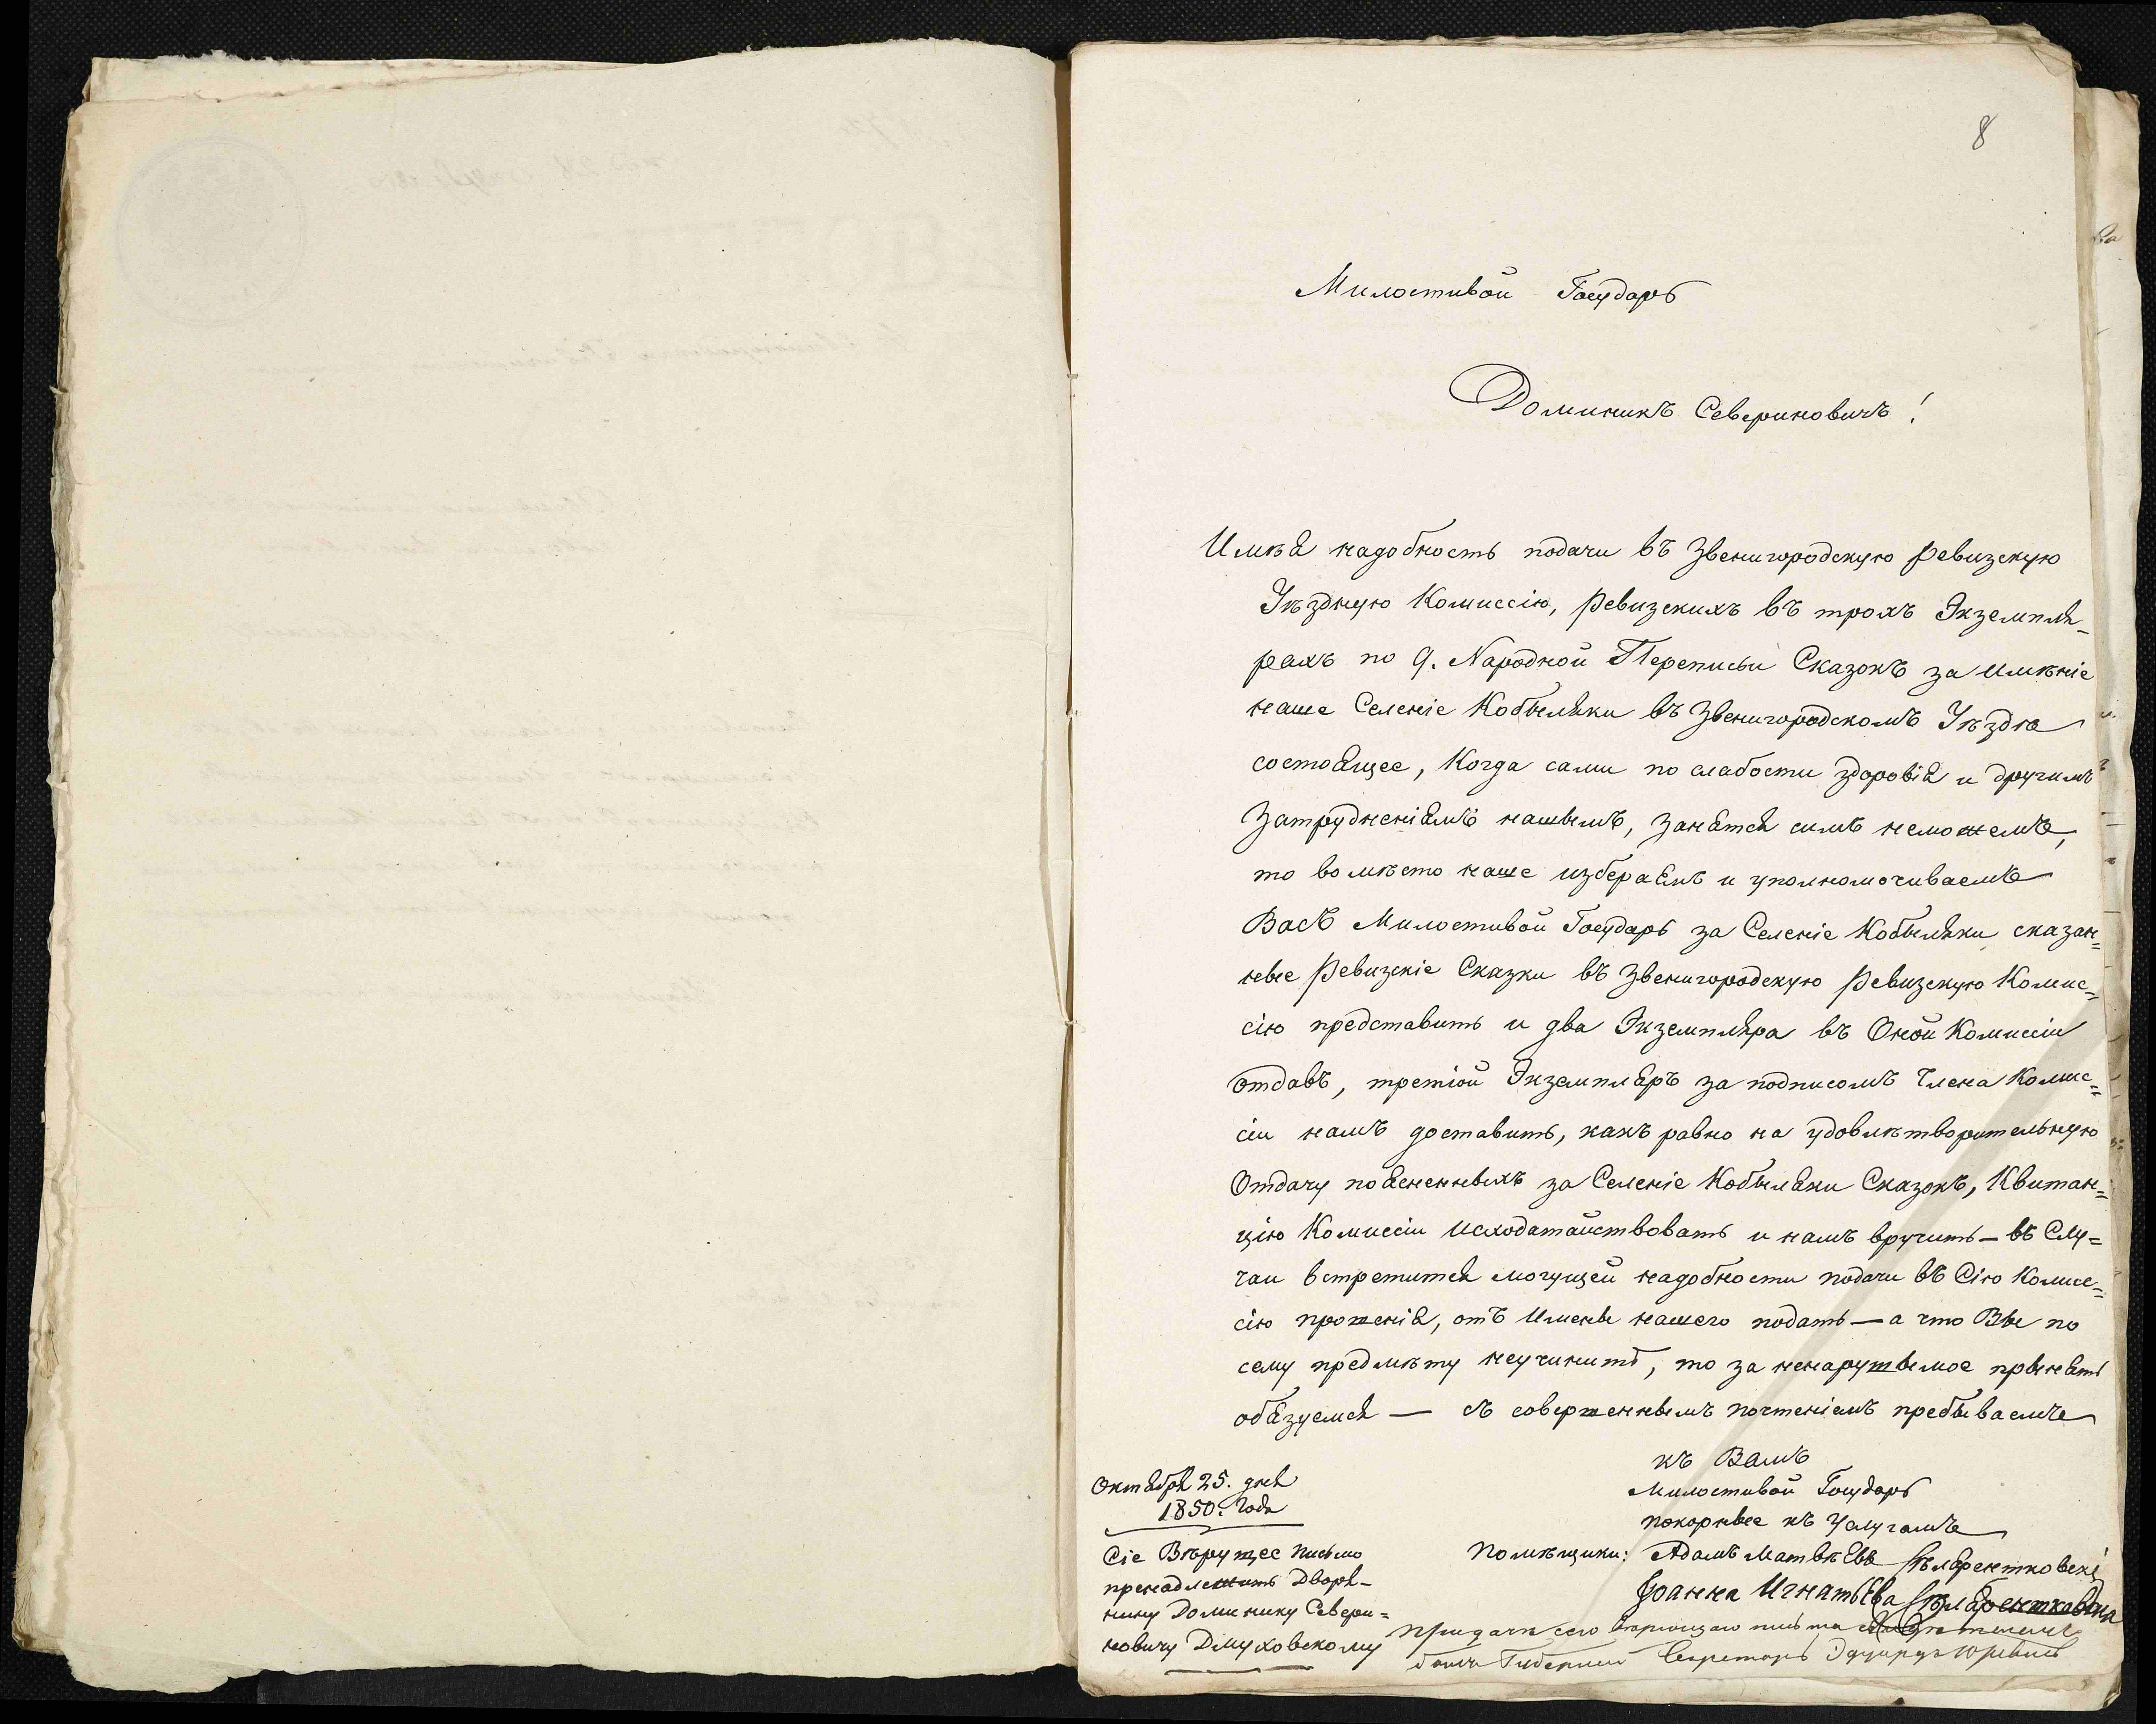 8
Милостивой Государь
Доминикъ Севериновичъ!
Имѣя надобность подачи въ Звенигородскую Ревизскую
Уѣздную Комиссію, Ревизскихъ въ трохъ Экземпля-
рахъ по 9. Народной Переписы Сказокъ за имѣніе
наше Селеніе Кобыляки въ Звенигородскомъ Уѣздѣ
состоящее, Когда сами по слабости здоровія и другимъ
Затрудненіямъ нашымъ, занятся симъ неможемъ,
то вомѣсто наше избераемъ и уполномочиваемъ
Васъ Милостивой Государь за Селеніе Кобыляки сказан=
ные Ревизскіе Сказки въ Звенигородскую Ревизскую Комис=
сію представить и два Экземпляра въ Оной Комиссіи
отдавъ, третіой Экземпляръ за подписомъ Члена Комис=
сіи намъ доставить, какъ равно на удовлѣтворительную
Отдачу пояененныхъ за Селеніе Кобыляки Сказокъ, Квитан=
цію Комиссіи Исходатайствовать и намъ вручить — въ Слу=
чаи встретится могущей надобности подачи въ Сію Комис=
сію прошенія, отъ Имены нашего подать — а что Вы по
сему предмѣту неучинитъ, то за ненарушымое прынять
обязуемся — съ совершеннымъ почтеніемъ пребываемъ
къ Вамъ
Милостивой Государь
покорные къ Услугамъ
Октября 25. дня
1850. Года
Помѣщики: Адамъ Матвѣевъ
Іоанна Игнатьева
Сіе Вѣрущее Письмо
пренадлежитъ Дворя-
нину Доминику Севери=
новичу Дмуховскому
При дачи сего вѣрющаго письма
былъ Губернскій Секретарь Эдуардъ Юревичъ